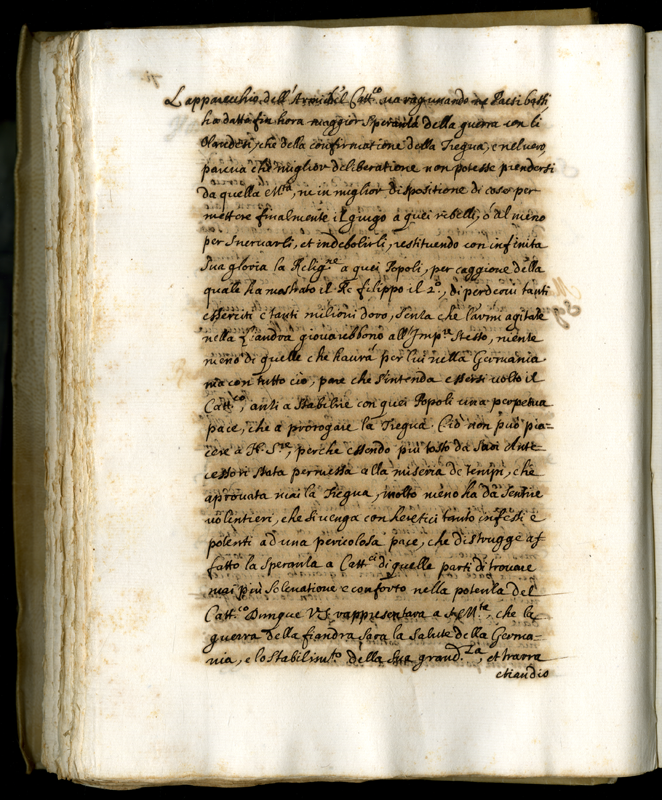 L'apparecchio dell'Armi ch'il Catt.co va ragunando ne Paesi bassi
ha dato fin hora maggior speranza della guerra con li
Olandesi, che della confirmatione della Tregua, e nel vero
pareva che miglior deliberatione non potesse prendersi
da quella M.tà, ne in miglior dispositione di cose per
mettere finalmente il giogo à quei ribelli, ò al meno
per snervarli, et indebolirli, restituendo con infinita
sua gloria la Relig.ne a quei Popoli, per caggione della
quale ha mostrato il Rè filippo il 2.º, di perdervi tanti
esserciti e tanti milioni d'oro, senza che l'armi agitate
nella fiandra giovarebbono all'Imp.re stesso, niente
meno di quelle che haurà per lui nella Germania
ma con tutto cio, pare che s'intenda essersi volto il
Catt.co, anzi a stabilire con quei Popoli una perpetua
pace, che a prorogare la Tregua. Ciò non può pia=
cere a N. S.re, perche essendo più tosto da suoi Ante=
cessori stata permessa alla miseria de tempi, che
aprovata mai la Tregua, molto meno ha da sentire
volentieri, che si venga con heretici tanto infesti e
potenti ad una pericolosa pace, che distrugge af
fatto la speranza a Catt.ci di quelle parti di trovare
mai più sollevatione e conforto nella potenza del
Catt.co Dunque V.S. rappresentarà a S. M.tà, che la
guerra della fiandra sarà la salute della Germa=
nia, e lo stabilim.to della sua grand.za, et trarrà
etiandio